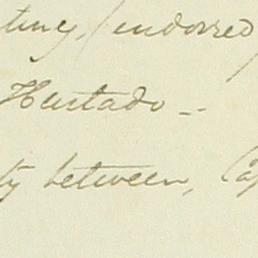 ting, (endorsed
Hurtado --
ty between, Cap